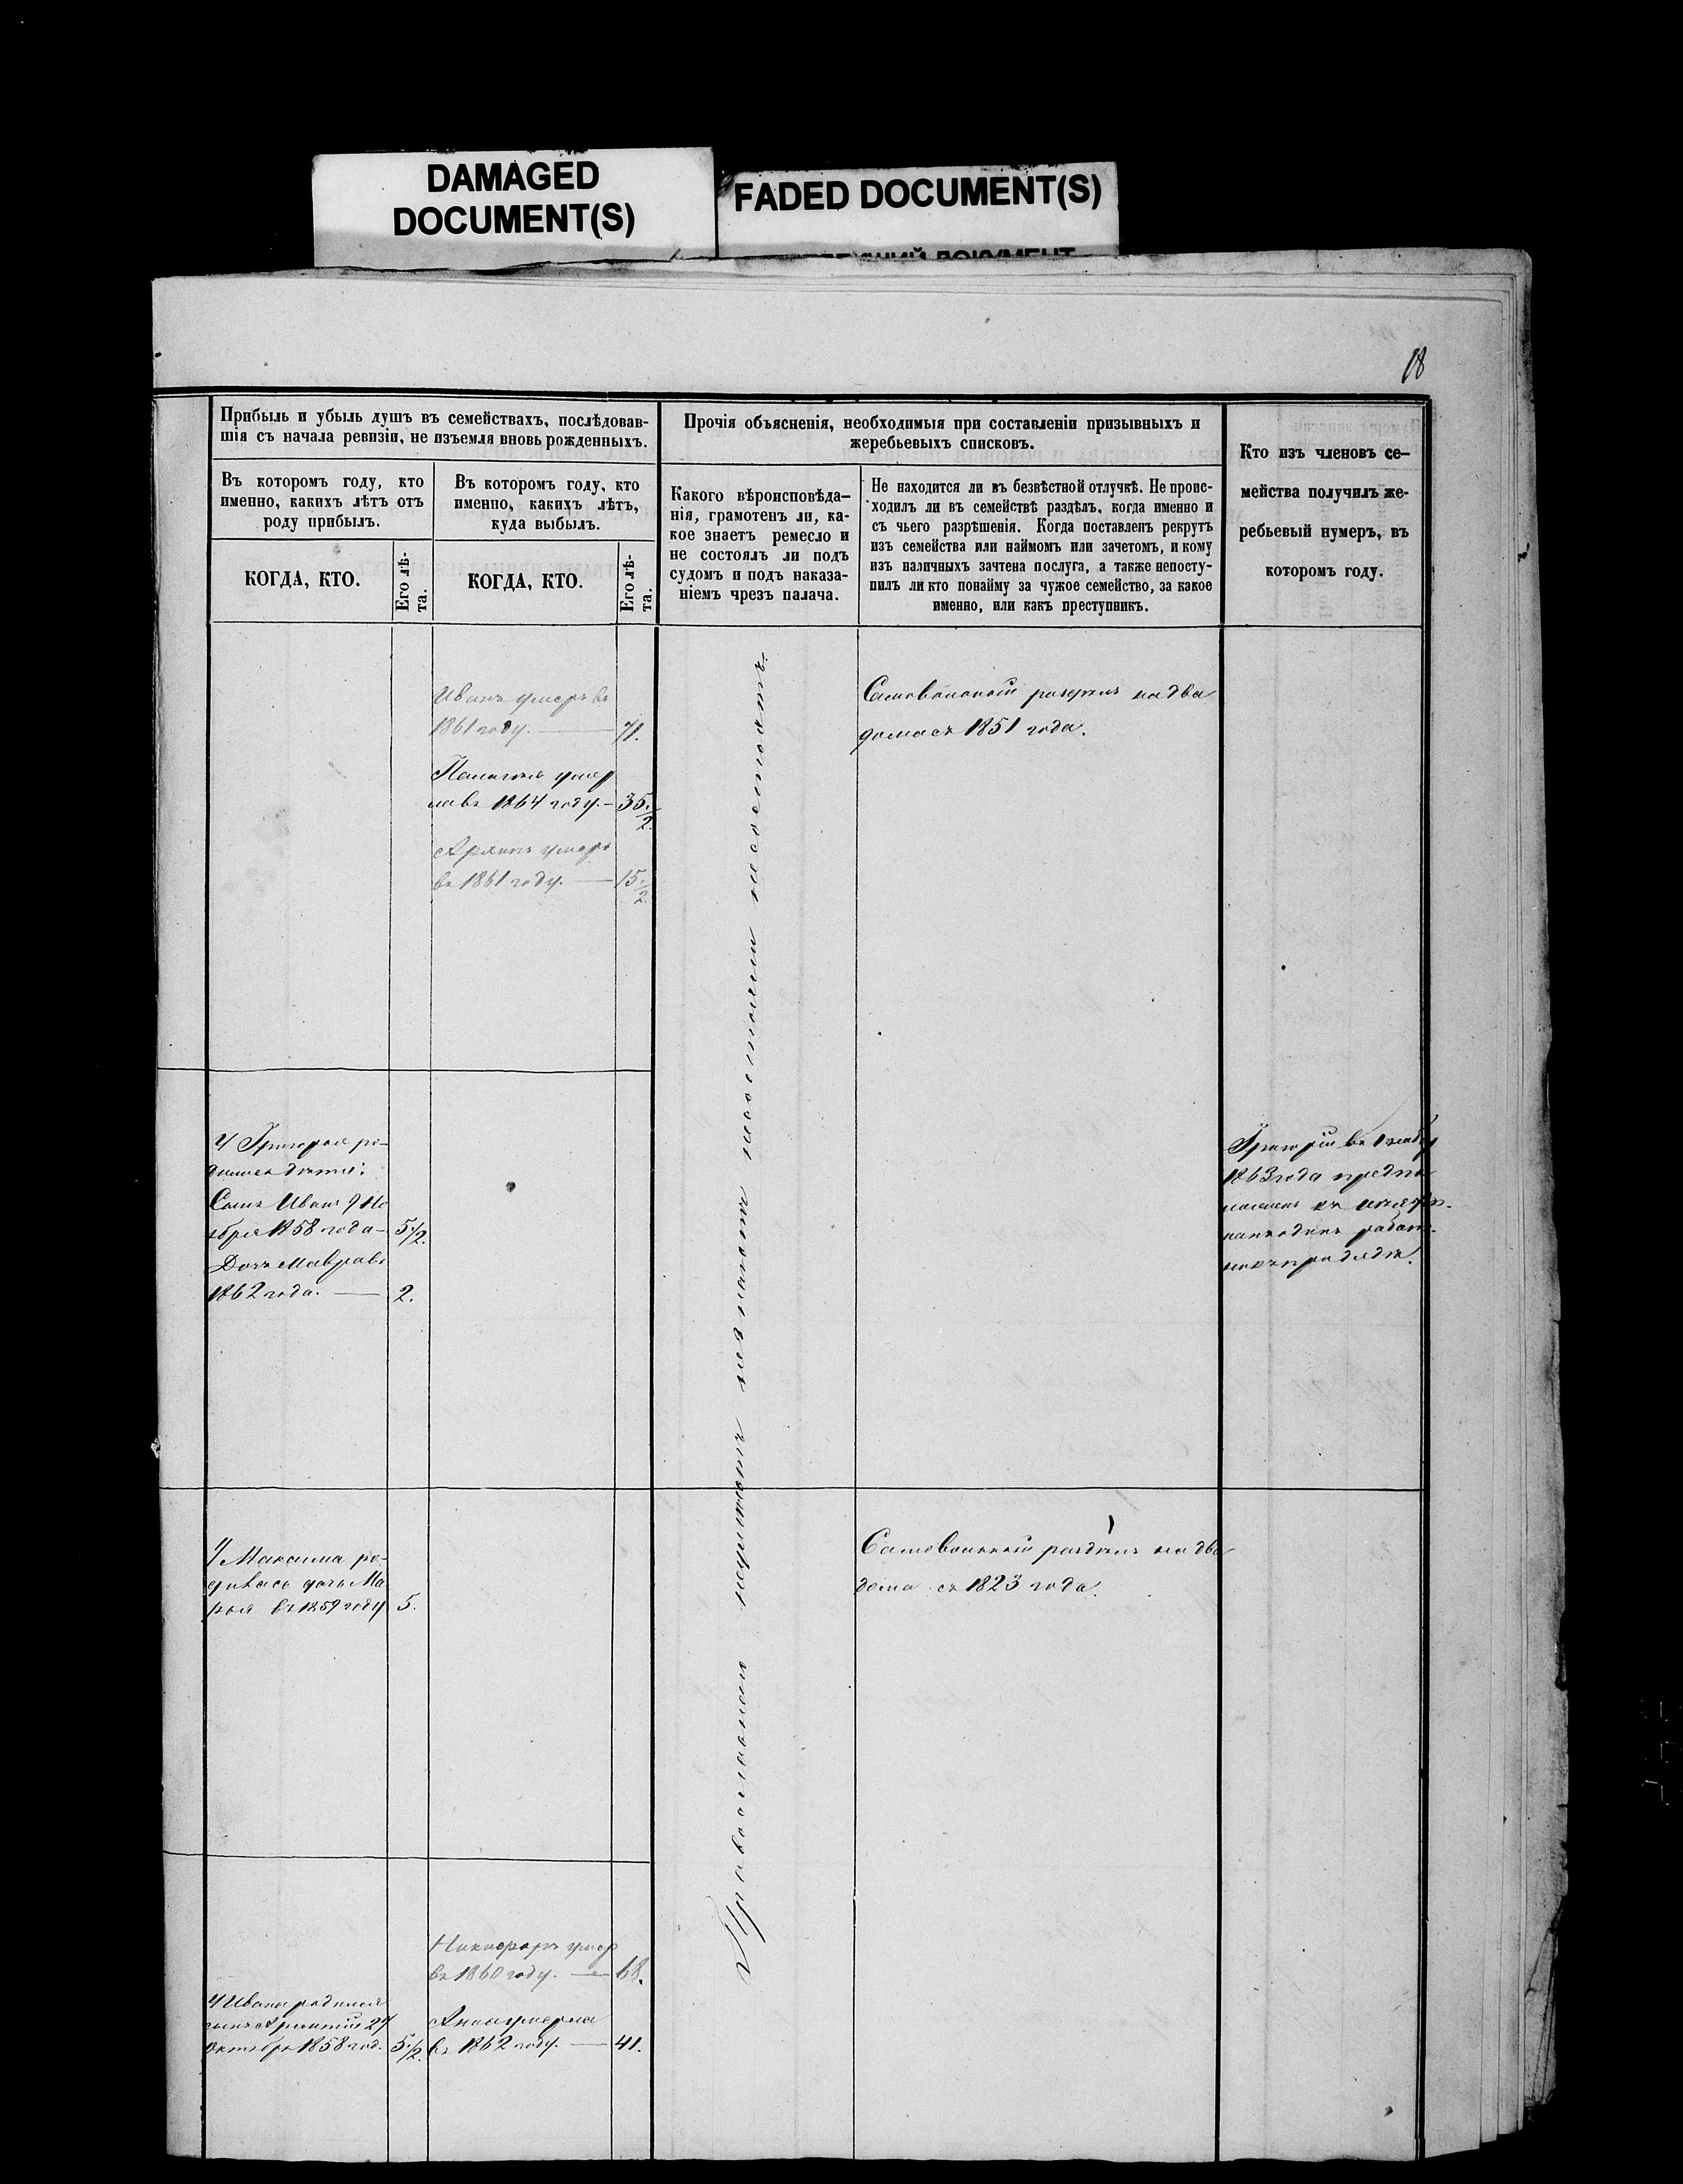 DAMAGED
DOCUMENT(S)
FADED DOCUMENT(S)
18
Прибыль и убыль душъ въ семействахъ, послѣдовав-
шія съ начала ревизіи, не изъемля вновь рожденныхъ.
Въ которомъ году, кто
именно, какихъ лѣтъ отъ
роду прибылъ.
КОГДА, КТО.
Его лѣ-
та.
Въ которомъ году, кто
именно, какихъ лѣтъ,
куда выбылъ.
КОГДА, КТО.
Его лѣ-
та.
Прочія объясненія, необходимыя при составленіи призывныхъ и
жеребьевыхъ списковъ.
Какого вѣроисповѣда-
нія, грамотенъ ли, ка-
кое знаетъ ремесло и
не состоялъ ли подъ
судомъ и подъ наказа-
ніемъ чрезъ палача.
Не находится ли въ безвѣстной отлучкѣ. Не проис-
ходилъ ли въ семействѣ раздѣлъ, когда именно и
съ чьего разрѣшенія. Когда поставленъ рекрутъ
изъ семейства или наймомъ или зачетомъ, и кому
изъ наличныхъ зачтена послуга, а также непосту-
пилъ ли кто понайму за чужое семейство, за какое
именно, или какъ преступникъ.
Кто изъ членовъ се-
мейства получилъ же-
ребьевый нумеръ, въ
которомъ году.
Иванъ умеръ въ
1861 году. — 71.
Палагея умер
ла въ 1864 году. — 35 1/2.
умеръ
въ 1861 году. — 15 1/2.
Самовольный раздѣлъ на два
дома съ 1851 года.
У Григорья ро-
дились дѣти:
Сынъ Иванъ 9 Но
ября 1858 года — 5 1/2.
Дочь Мавра въ
1862 года. — 2.
Григорій въ
1863 года
У Максима ро-
дилась дочь Ма
рья въ 1859 году 5.
Самовольный раздѣлъ на два
дома съ 1823 года.
Никифоръ умер
въ 1860 году. — 68.
У Ивана родился
сынъ 27
Октября 1858 год. 5 1/2.
Анна умерла
въ 1862 году. — 41.
Православнаго